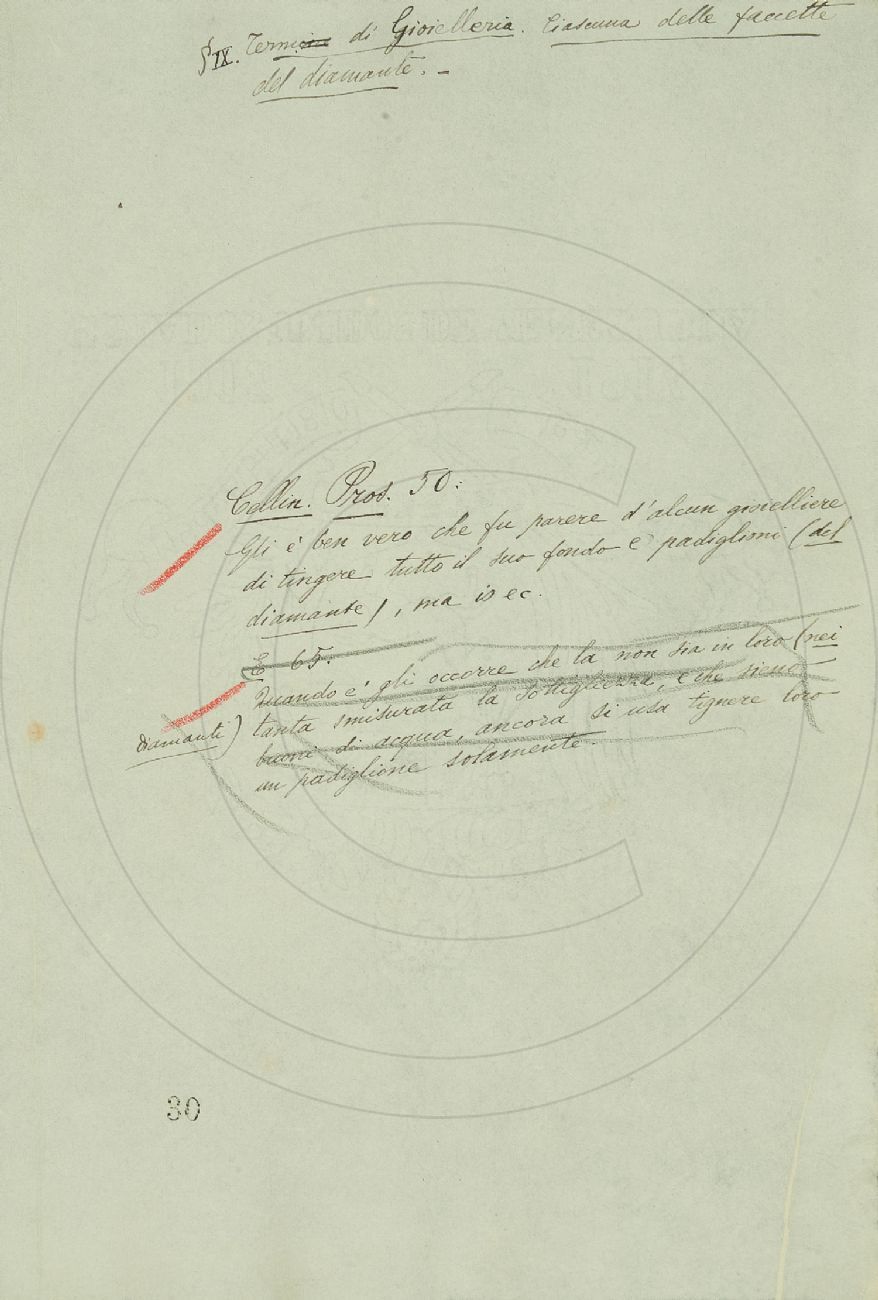 § IX. Termine di Gioielleria. Ciascuna delle faccette
del diamante. –
Cellin. Pros. 50:
Gli è ben vero che fu parere d'alcun gioielliere
di tingere tutto il suo fondo e padiglioni (del
diamante), ma io ec.
E 65:
Quando e' gli occorre che la non sia in loro (nei
diamanti)
tanta smisurata la sottigliezza, e che sieno
buoni di acqua, ancora si usa tignere loro
un padiglione solamente.
30